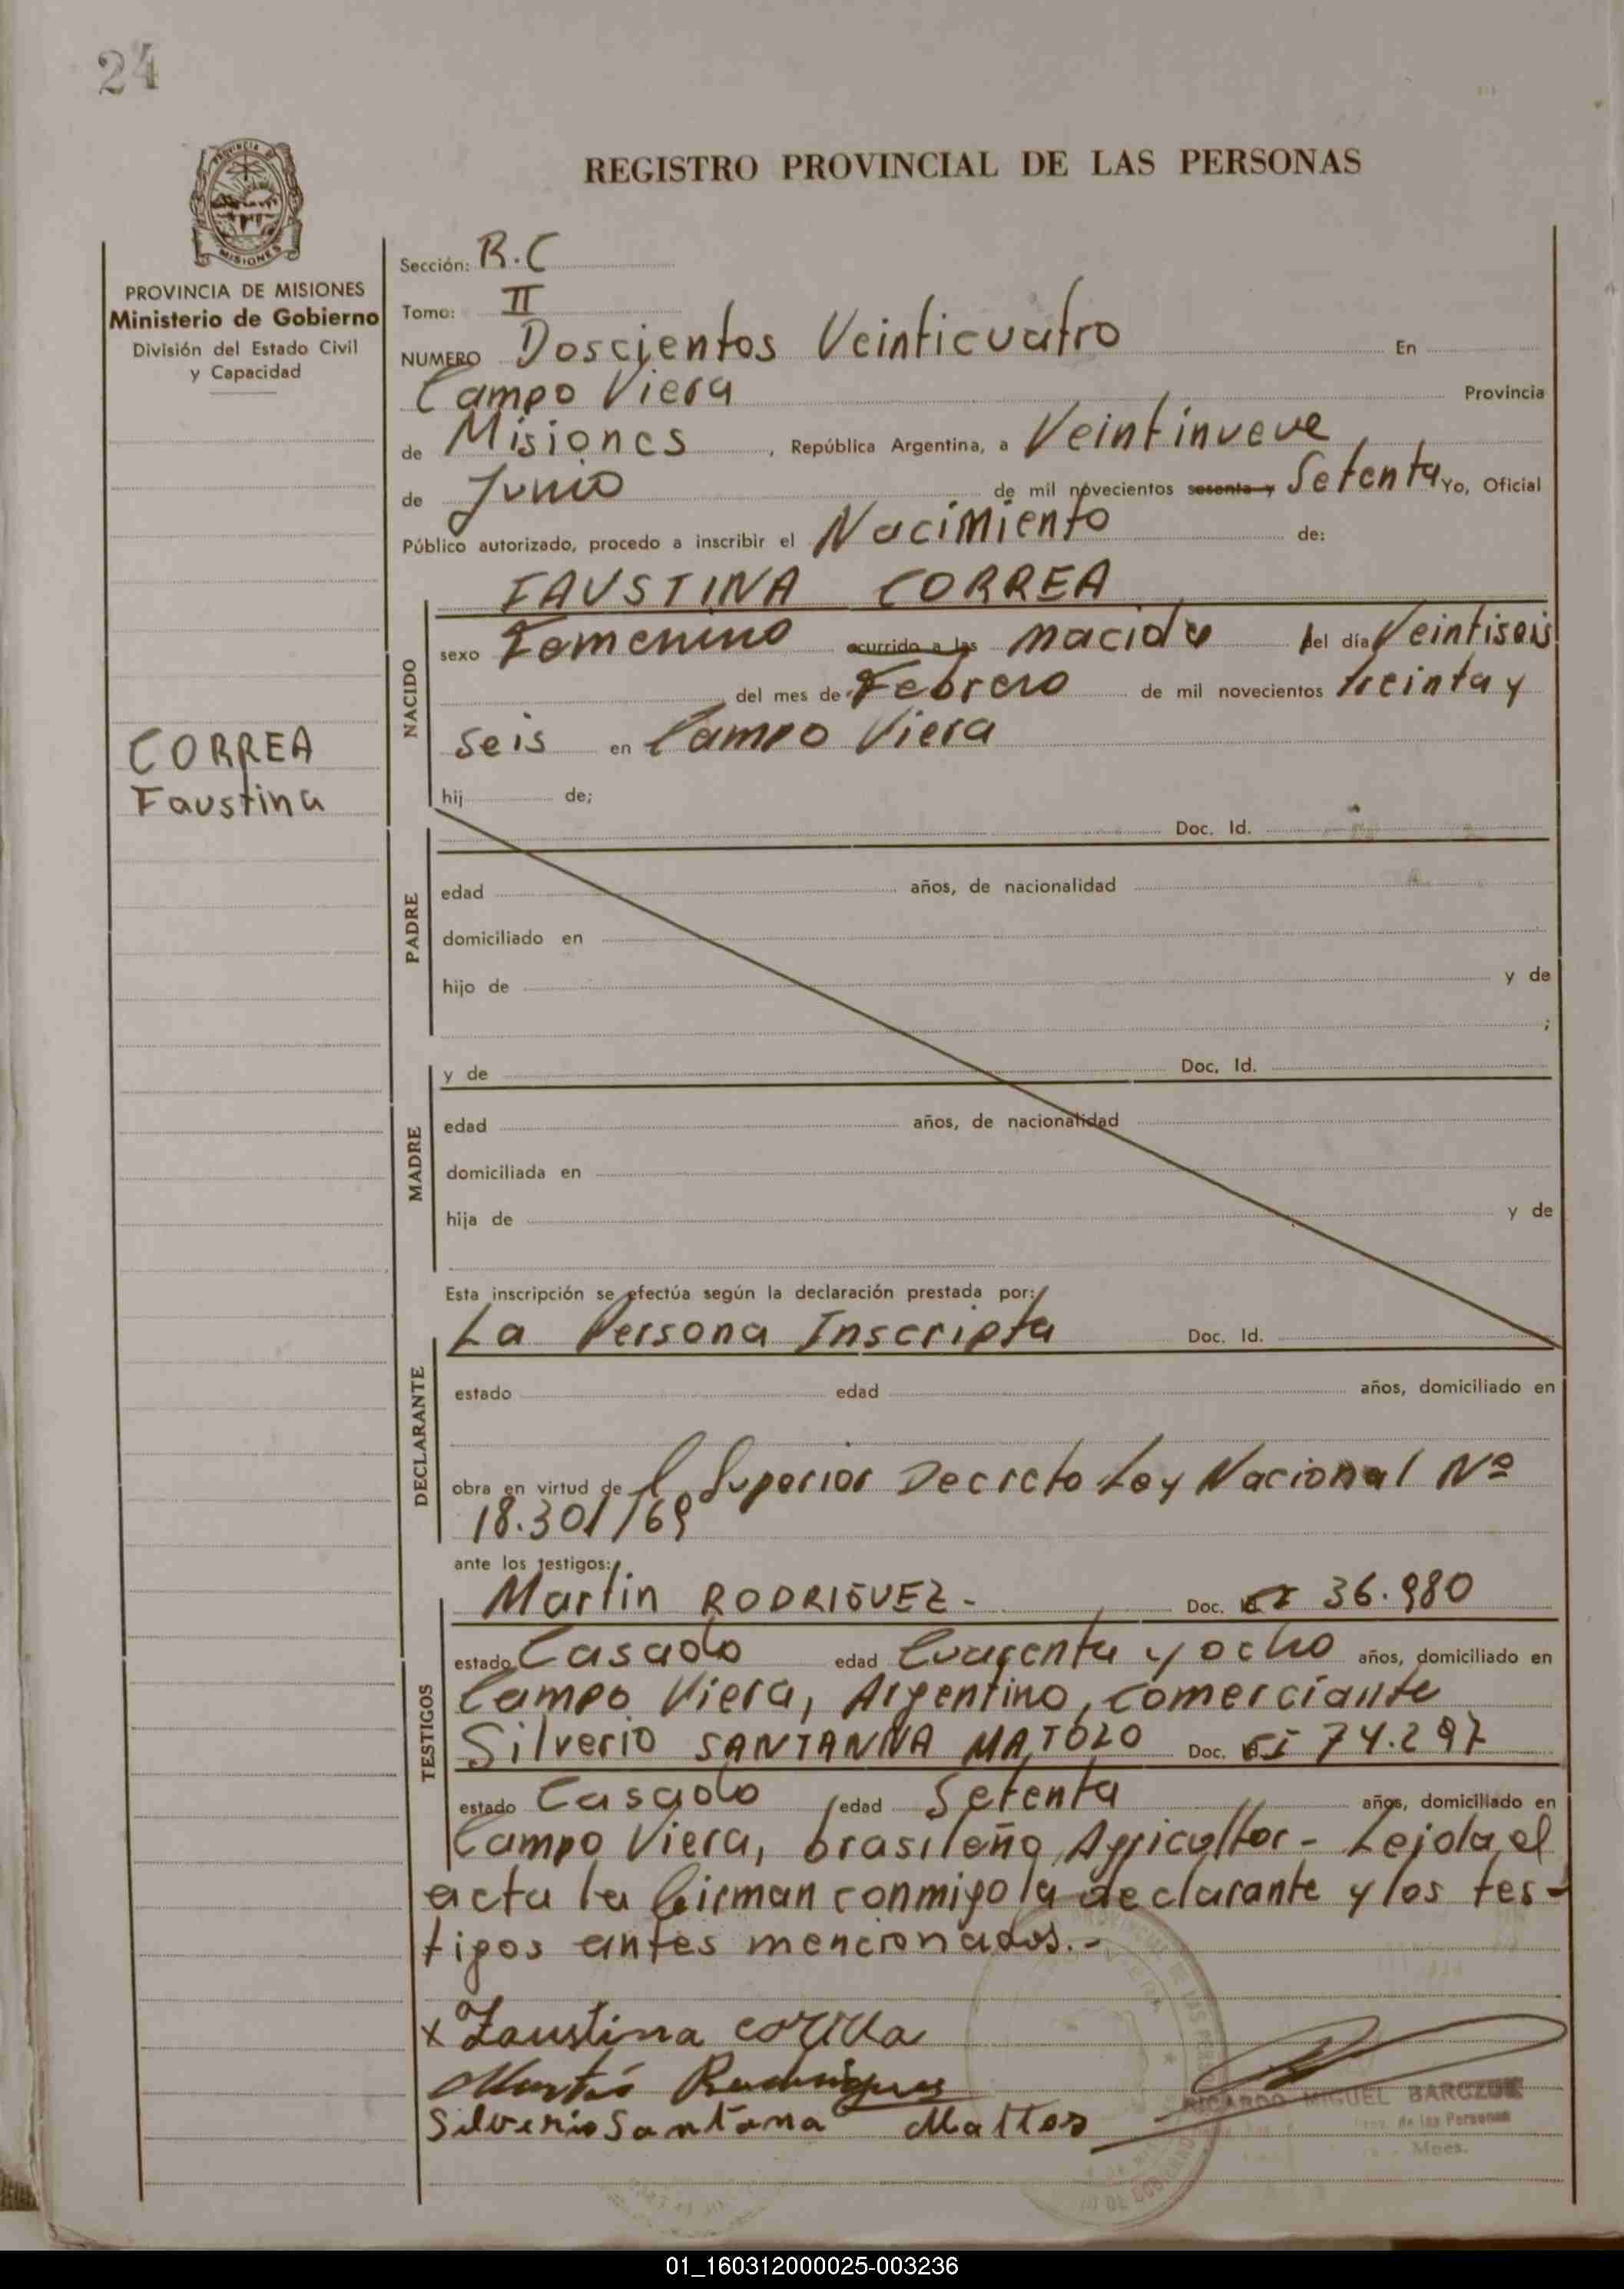 24
REGISTRO PROVINCIAL DE LAS PERSONAS
PROVINCIA DE
MISIONES
PROVINCIA DE MISIONES
Ministerio de Gobierno
División del Estado Civil
y Capacidad
CORREA
Faustina
Sección: R.C
Tomo: II
NUMERO Doscientos Veinticuatro En
Campo Viera Provincia
de Misiones, República Argentina, a Veintinueve
de Junio de mil novecientos sesenta y Setenta Yo, Oficial
Público autorizado, procedo a inscribir el Nacimiento de:
NACIDO
FAUSTINA CORREA
sexo Femenino ocurrido a las nacida del día Veintiseis
del mes de Febrero de mil novecientos treinta y
seis en Campo Viera
hij de;
PADRE
Doc. Id.
edad años, de nacionalidad
domiciliado en
hijo de y de
;
MADRE
y de Doc. Id.
edad años, de nacionalidad
domiciliada en
hija de y de
Esta inscripción se efectúa según la declaración prestada por:
DECLARANTE
La Persona Inscripta Doc. Id.
estado edad años, domiciliado en
obra en virtud de l Superior Decreto Ley Nacional Nº
18.301/69
ante los testigos:
TESTIGOS
Martin RODRIGUEZ.- Doc. CI 36.980
estado Casado edad Cuarenta y ocho años, domiciliado en
Campo Viera, Argentino, comerciante
Silverio SANTANNA MATOZO Doc. CI 74.297
estado Casado edad Setenta años, domiciliado en
Campo Viera, brasileño, Agricultor - Leida el
acta la firman conmigo la declarante y los tes-
tigos antes mencionados.-
x Faustina correa
Martín Rodriguez
Silverio Santana Mattos
RICARDO MIGUEL BARCZUK
de las Personas
01_160312000025-003236